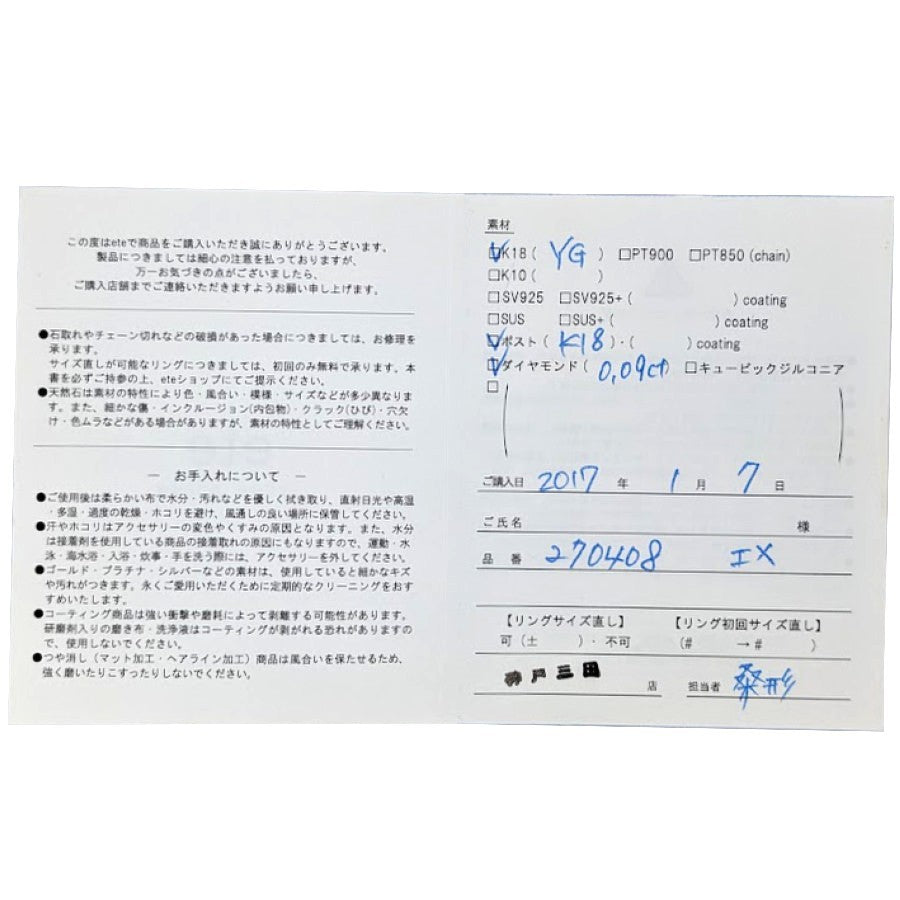 この度はeteで商品をご購入いただき誠にありがとうございます。
製品につきましては細心の注意を払っておりますが、
万一お気づきの点がございましたら、
ご購入店舗までご連絡いただきますようお願い申し上げます。
●石取れやチェーン切れなどの破損があった場合につきましては、お修理を
承ります。
サイズ直しが可能なリングにつきましては、初回のみ無料で承ります。本
書を必ずご持参の上、eteショップにてご提示ください。
●天然石は素材の特性により色・風合い・模様・サイズなどが多少異なりま
す。また、細かな傷・インクルージョン(内包物)・クラック(ひび)・穴欠
け・色ムラなどがある場合がありますが、素材の特性としてご理解ください。
― お手入れについて ―
●ご使用後は柔らかい布で水分・汚れなどを優しく拭き取り、直射日光や高温
・多湿・過度の乾燥・ホコリを避け、風通しの良い場所に保管してください。
●汗やホコリはアクセサリーの変色やくすみの原因となります。また、水分
は接着剤を使用している商品の接着取れの原因にもなりますので、運動・水
泳・海水浴・入浴・炊事・手を洗う際には、アクセサリーを外してください。
●ゴールド・プラチナ・シルバーなどの素材は、使用していると細かなキズ
や汚れがつきます。永くご愛用いただくために定期的なクリーニングをおす
すめいたします。
●コーティング商品は強い衝撃や磨耗によって剥離する可能性があります。
研磨剤入りの磨き布・洗浄液はコーティングが剥がれる恐れがありますの
で、使用しないでください。
●つや消し（マット加工・ヘアライン加工）商品は風合いを保たせるため、
強く磨いたりこすったりしないでください。
素材
☑K18 ( YG ) □PT900 □PT850 (chain)
□K10 ( )
□SV925 □SV925+ ( ) coating
□SUS □SUS+ ( ) coating
☑ポスト ( K18 )・( ) coating
☑ダイヤモンド ( 0.09ct □キュービックジルコニア
□
ご購入日 2017 年 1 月 7 日
ご氏名 様
品 番 270408 エメ
【リングサイズ直し】 【リング初回サイズ直し】
可（土 ）・不可 (# →# )
神戸三田 店 担当者 桑形